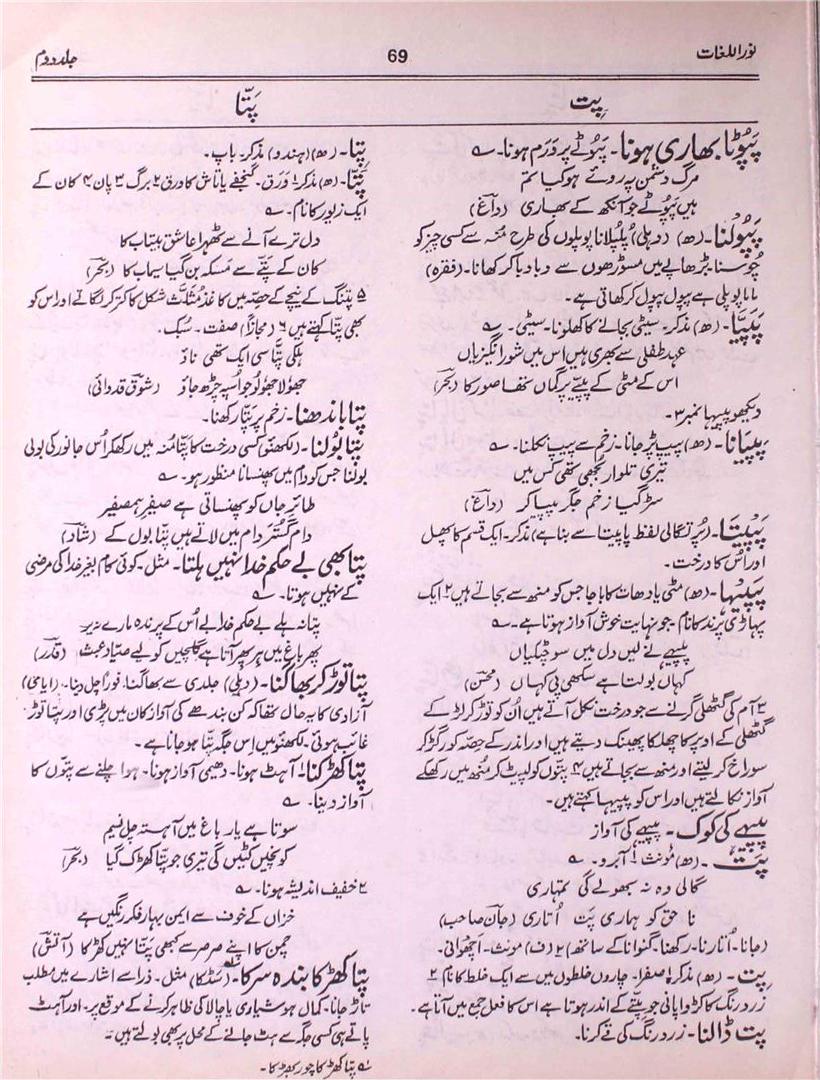 نوراللغات 69 جلددوم
پِت
پَتّا
پَپوٹا بھاری ہونا۔ پپوٹے پر وَرم ہونا۔ ؎
مرگ دشمن پر روتے ہو کیا تم
ہیں پپوٹے جو آنکھ کے بھاری (داغؔ)
پَپولنا۔ (ھ) (دہلی) پُلپلانا پوپلوں کی طرح منہ سے کسی چیز کو
چوسنا۔ بڑھاپے میں مسوڑھوں سے دبا دبا کر کھانا۔ (فقرہ)
بابا پوپلی ہے پپول پپول کر کھاتی ہے۔
پَپَیّا۔ (ھ) مذکر۔ سیٹی بجانے کا کھلونا۔ سیٹی۔ ؎
عہد طفلی سے بھری ہیں اس میں شور انگیزیاں
اس کے مٹی کے پپیے پر گماں تھا صور کا (بحرؔ)
دیکھو پپیہا نمبر ۳۔
پِیپانا۔ (ھ) پیپ پڑ جانا۔ زخم سے پیپ نکلنا۔ ؎
تیری تلوار بُجھی تھی کس میں
سڑ گیا زخم جگر پیپا کر (داغؔ)
پَپِیتا۔ (پُرتگالی لفظ پاپیتا سے بنا ہے) مذکر۔ ایک قسم کا پھل
اور اُس کا درخت۔
پَپِیہا۔ (ھ) مٹی یا دھات کا باجا جس کو منھ سے بجاتے ہیں ۲ ایک
پہاڑی پرند کا نام۔ جو نہایت خوش آواز ہوتا ہے۔ ؎
پپیہے نے لیں دل میں سو چٹکیاں
کہاں بولتا ہے سکھی پی کہاں (محسنؔ)
۳ آم کی گٹھلی گرنے سے جو درخت نکل آتے ہیں اُن کو توڑ کر لڑکے
گٹھلی کے اوپر کا چھلکا پھینک دیتے ہیں اور اندر کے حصّہ کو رگڑ کر
سوراخ کر لیتے اور منھ سے بجاتے ہیں ۴ پتّوں کو لپیٹ کر منھ میں رکھکے
آواز نکالتے ہیں اور اس کو پپیہا کہتے ہیں۔
پپیہے کی کوک۔ پپیہے کی آواز
پَت۔ (ھ) مؤنث ۱ آبرو۔ ؎
گالی وہ نہ بھولے گی تمہاری
ناحق کو ہماری پت اُتاری (جان صاحب)
(جانا۔ اُتارنا۔ رکھنا۔ گنوانا کے ساتھ) ۲ (ف) مونث۔ اچھوانی۔
پِت۔ (ھ) مذکر ۱ صفرا۔ چاروں خلطوں میں سے ایک خلط کا نام ۲
زرد رنگ کا کڑوا پانی جو پِتّے کے اندر ہوتا ہے اس کا فعل جمع میں آتا ہے۔
پت ڈالنا۔ زرد رنگ کی قے کرنا۔
پِتا۔ (ھ) (ہندو) مذکر۔ باپ۔
پَتّا۔ (ھ) مذکر ۱ ورق۔ گنجفے یا تاش کا ورق ۲ برگ ۳ پان ۴ کان کے
ایک زیور کا نام۔ ؎
دل ترے آنے سے ٹھہرا عاشق بیتاب کا
کان کے پتّے سے مسکہ بن گیا سیماب کا (بحرؔ)
۵ پتنگ کے نیچے کے حصّہ میں کاغذ مُثلّث شکل کا کتر کر لگاتے اور اس کو
بھی پتّا کہتے ہیں ۶ (مجازاً) صفت۔ سُبک۔
ہلکی پتّا سی ایک تھی ناؤ
جھولا جھولو جو اُسپہ چڑھ جاؤ (شوق قدوائی)
پتّا باندھنا۔ زخم پر پتّا رکھنا۔
پتا بولنا۔ (لکھنؤ) کسی درخت کا پتّا مُنہ میں رکھکر اُس جانور کی بولی
بولنا جس کو دام میں پھنسانا منظور ہو۔ ؎
طائرِ جاں کو پھنساتی ہے صفیرِ ہمصفیر
دام گُستر دام میں لاتے ہیں پتّا بول کے (شادؔ)
پتا بھی بے حکمِ خدا نہیں ہلتا۔ مثل۔ کوئی کام بغیر خدا کی مرضی
کے نہیں ہوتا۔ ؎
پتا نہ ہلے بے حکمِ خدا بے اُس کے پرندہ مارے نہ پر
پھر باغ میں ہر پھر آتا ہے گلچیں کو لیے صیّاد عبث (قدرؔ)
پتا توڑ کر بھاگنا۔ (دہلی) جلدی سے بھاگنا۔ فوراً چل دینا۔ (ایامیٰ)
آزادی کا یہ حال تھا کہ کن بندھے کی آواز کان میں پڑی اور پتا توڑ
غائب ہوئی۔ لکھنؤ میں اِس جگہ پتّا ہو جانا ہے۔
پتا کھڑکنا ۱ آہٹ ہونا۔ دھیمی آواز ہونا۔ ہوا چلنے سے پتّوں کا
آواز دینا۔ ؎
سوتا ہے یار باغ میں آہستہ چل نسیم
کونچیں کٹیں گی تیری جو پتّا کھڑک گیا (بحرؔ)
۲ خفیف اندیشہ ہونا۔ ؎
خزاں کے خوف سے ایمن بہارِ فکرِ رنگیں ہے
چمن کا اپنے صرصر سے کبھی پتا نہیں کھڑکا (آتشؔ)
پتا کھڑکا بندہ سرکا۔ مثل۔ ذرا سے اشارے میں مطلب
تاڑ جانا۔ کمال ہوشیاری یا چالاکی ظاہر کرنے کے موقع پر۔ اور آہٹ
پاتے ہی کسی جگہ سے ہٹ جانے کے محل پر بھی بولتے ہیں۔
پتا کھڑکا چور بھڑکا۔